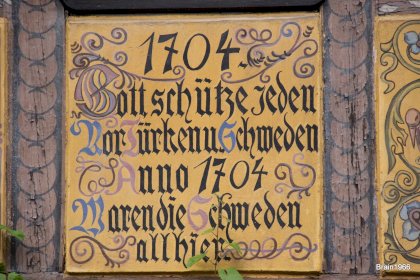 1704.
Gott schütze Jeden
Vor Türken u Schweden
Anno 1704
Waren die Schweden
allhier
Brain1966